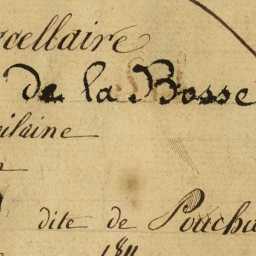 rcellaire
de la Bosse
ilaine
dite de Poucha
1811